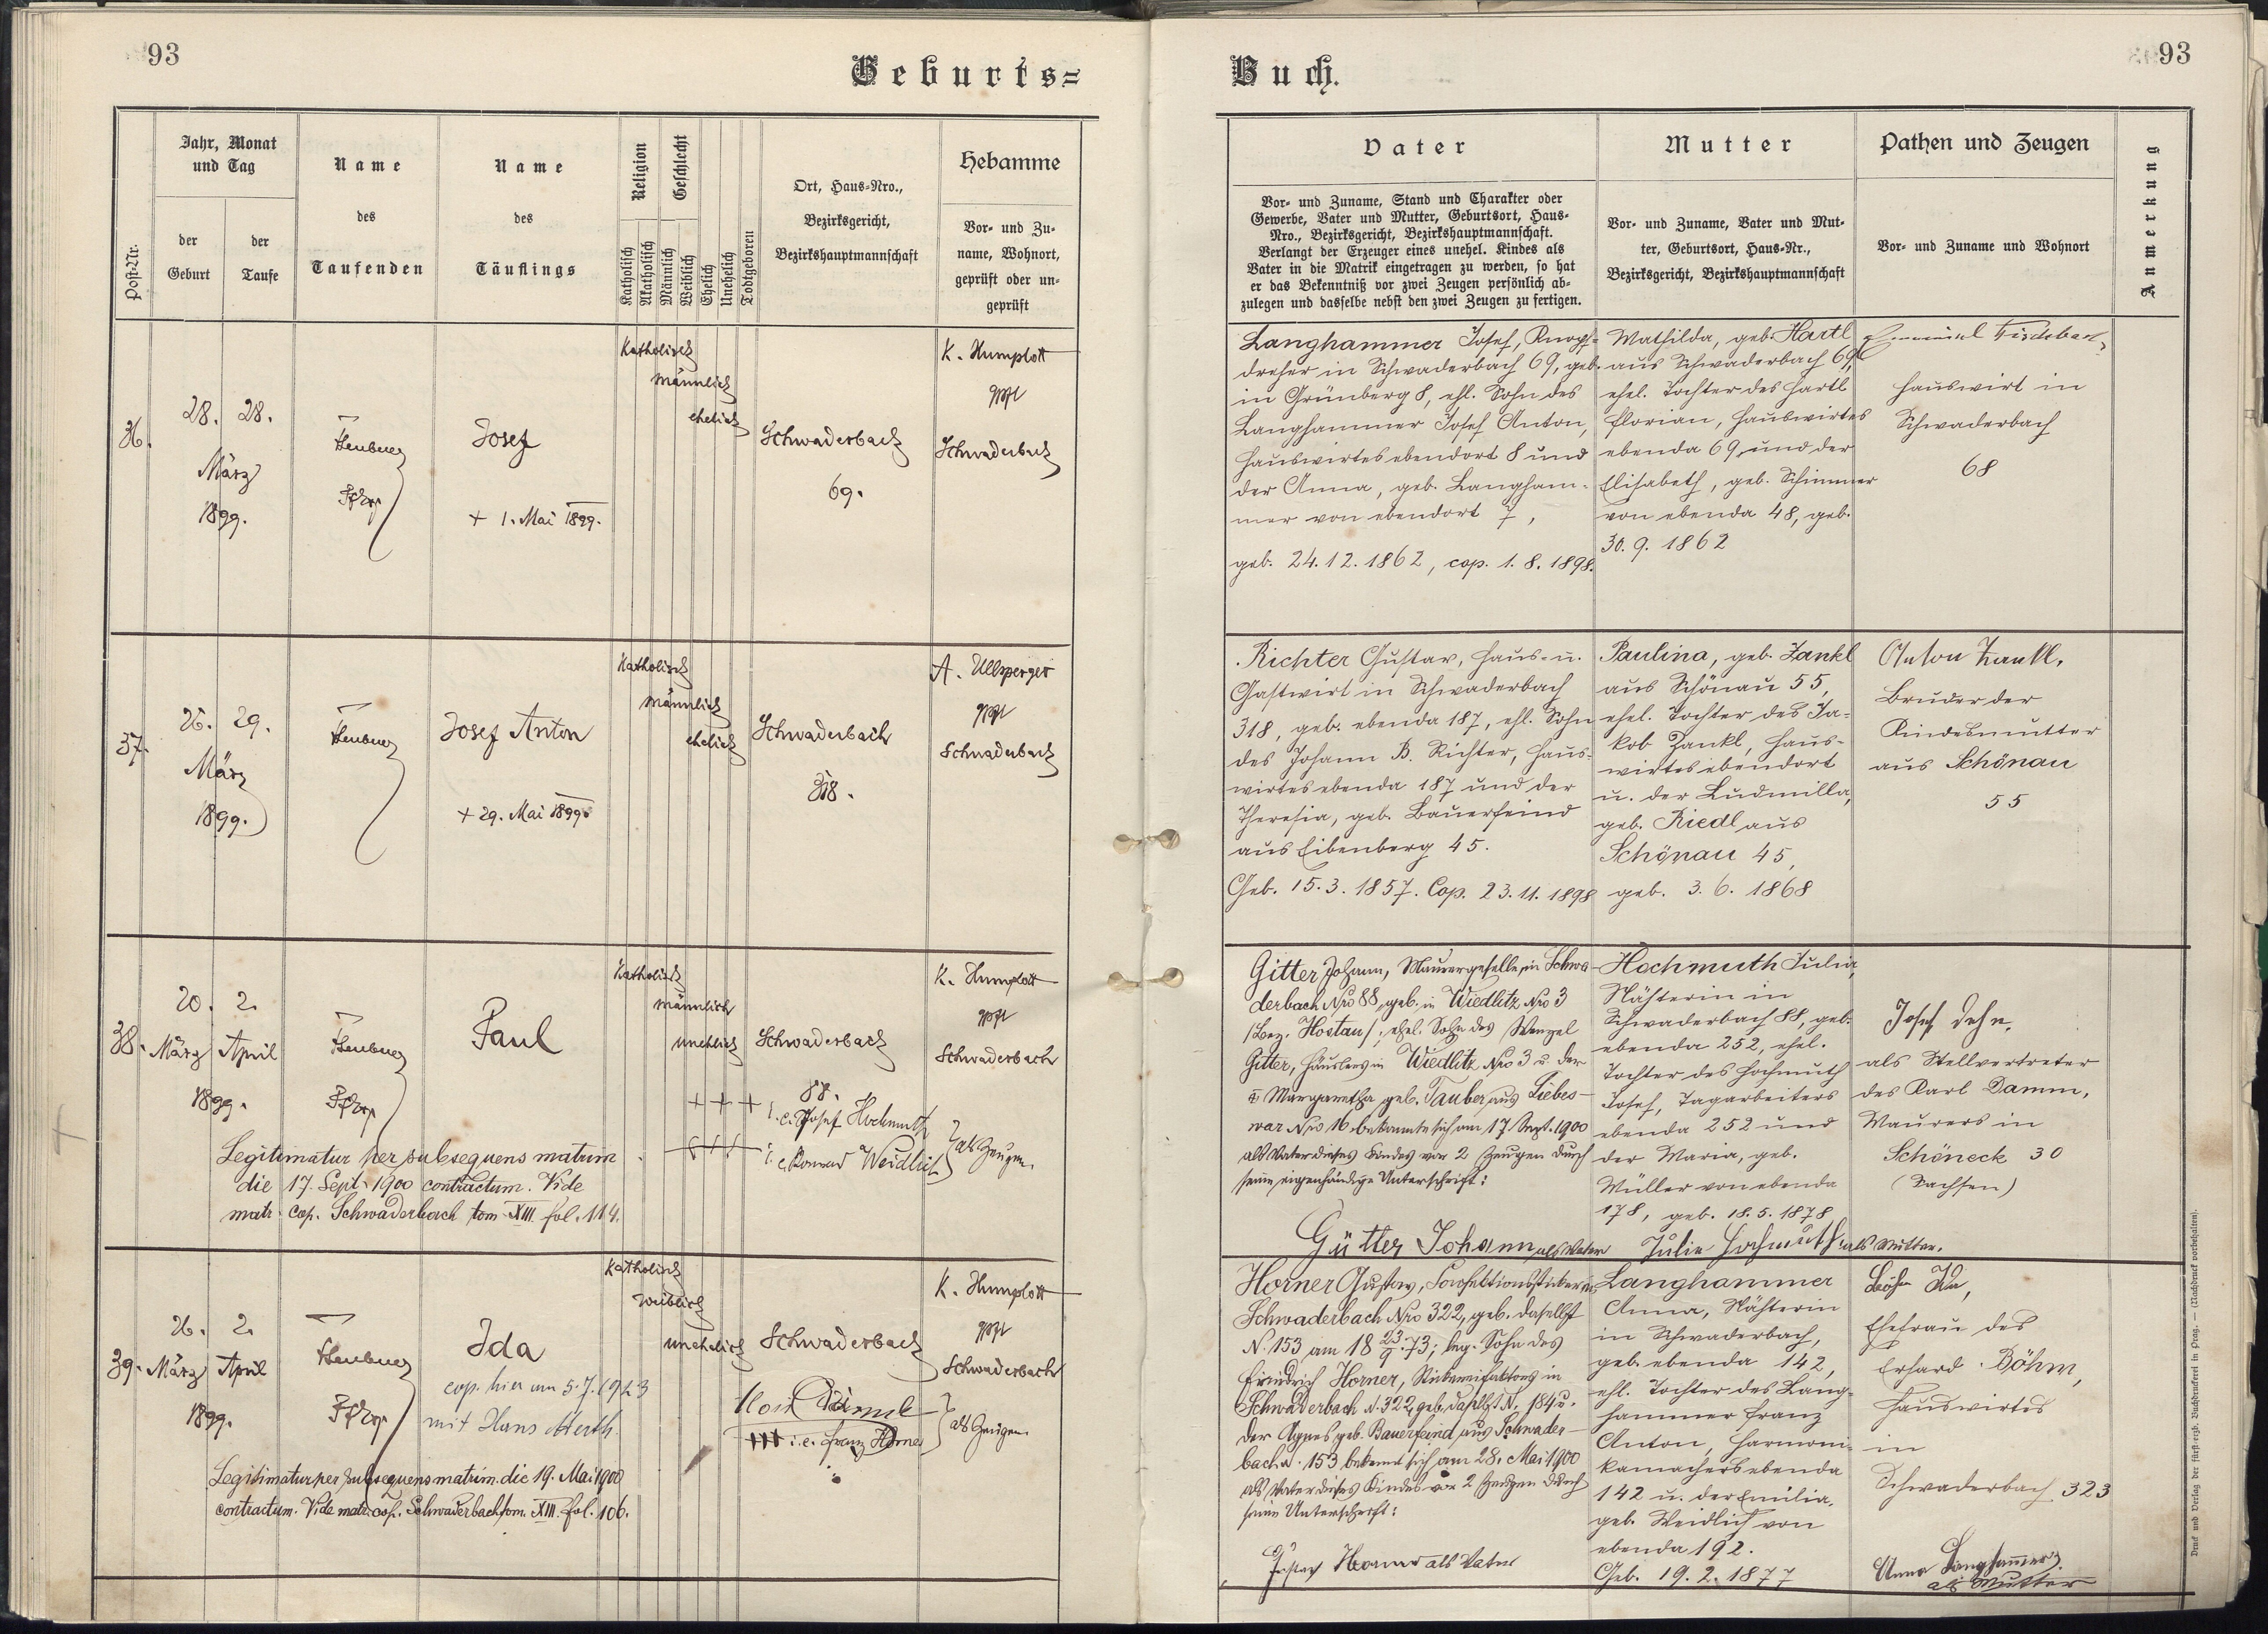 93
Geburts=
Post-Nr.
Jahr, Monat
und Tag
der
Geburt
der
Taufe
Name
des
Taufenden
Name
des
Täuflings
Religion
Katholisch
Akatholisch
Geschlecht
Männlich
Weiblich
Ehelich
Unehelich
Todtgeboren
Ort, Haus=Nro.,
Bezirksgericht,
Bezirkshauptmannschaft
Hebamme
Vor= und Zu=
name, Wohnort,
geprüft oder un=
geprüft
36.
28. 28.
März
1899.
Pfr.
Josef
+ 1. Mai 1899.
Katholisch
männlich
ehelich
Schwaderbach
69.
K. Humplott
gpft
Schwaderbach
37.
26. 29.
März
1899.
Josef Anton
+ 29. Mai 1899.
Katholisch
männlich
ehelich
Schwaderbach
318.
A. Ullsperger
gpft
Schwaderbach
38.
20. 2.
März April
1899.
Pfr.
Paul
Katholisch
männlich
unehelich
Schwaderbach
88.
+ + + i. e. Josef Hochmuth
+++ i. e. Konrad Weidlich
als Zeugen.
K. Humplott
gpft
Schwaderbach
Legitimatur per subsequens matrim
die 17. Sept. 1900 contractum. Vide
matr. cop. Schwaderbach tom XIII. fol. 114.
39.
26. 2.
März April
1899.
Pfr.
Ida
cop. hier am 5. 7. 1923
mit Hans
Katholisch
weiblich
unehelich
Schwaderbach
+++ i. e. Franz Horner
als Zeugen.
K. Humplott
gpft
Schwaderbach
Legitimatur per subsequens matrim. die 19. Mai 1900
contractum. Vide matr. cop. Schwaderbach tom. XIII. fol. 106.
93
Buch.
Vater
Vor= und Zuname, Stand und Charakter oder
Gewerbe, Vater und Mutter, Geburtsort, Haus=
Nro., Bezirksgericht, Bezirkshauptmannschaft.
Verlangt der Erzeuger eines unehel. Kindes als
Vater in die Matrik eingetragen zu werden, so hat
er das Bekenntniß vor zwei Zeugen persönlich ab=
zulegen und dasselbe nebst den zwei Zeugen zu fertigen.
Mutter
Vor= und Zuname, Vater und Mut=
ter, Geburtsort, Haus=Nr.,
Bezirksgericht, Bezirkshauptmannschaft
Pathen und Zeugen
Vor= und Zuname und Wohnort
Anmerkung
Langhammer Josef, Knopf=
dreher in Schwaderbach 69, geb.
in Grünberg 8, ehl. Sohn des
Langhammer Josef Anton,
Hauswirtes ebendort 8 und
der Anna, geb. Langham=
mer von ebendort 7,
geb. 24.12.1862, cop. 1.8.1898.
Mathilda, geb. Hartl
aus Schwaderbach 69,
ehel. Tochter des Hartl
Florian, Hauswirtes
ebenda 69 und der
Elisabeth, geb. Schimmer
von ebenda 48, geb.
30. 9. 1862
Hauswirt in
Schwaderbach
68
Richter Gustav, Haus= u.
Gastwirt in Schwaderbach
318, geb. ebenda 187, ehl. Sohn
des Johann B. Richter, Haus=
wirtes ebenda 187 und der
Theresia, geb. Bauerfeind
aus Eibenberg 45.
Geb. 15.3.1857. Cop. 23.11.1898
Paulina, geb. Zankl
aus Schönau 55,
ehel. Tochter des Ja=
kob Zankl, Haus=
wirtes ebendort
u. der Ludmilla,
geb. Riedl aus
Schönau 45,
geb. 3. 6. 1868
Anton Zankl,
Bruder der
Kindesmutter
aus Schönau
55
Gitter Johann, Maurergeselle, in Schwa-
derbach Nro 88, geb. in Wiedlitz Nro 3
/Bez. Hostau/; ehel. Sohn des Wenzel
Gitter, Häuslers in Wiedlitz Nro 3 u. der
Margaretha geb. Tauber aus Liebes-
war Nro 16 bekannte sich am 17. Sept. 1900
als Vater dieses Kindes vor 2 Zeugen durch
seine eigenhändige Unterschrift:
Gütter Johann als Vater
Hochmuth Julia,
Nähterin in
Schwaderbach 88, geb.
ebenda 252, ehel.
Tochter des Hochmuth
Josef, Tagarbeiters
ebenda 252 und
der Maria, geb.
Müller von ebenda
178, geb. 18.5.1878
Julie Hochmuth als Mutter.
Josef
als Stellvertreter
des Karl Damm,
Maurers in
Schöneck 30
(Sachsen)
Horner Gustav, in
Schwaderbach Nro 322, geb. daselbst
N. 153 am 18 23/9 73; leg. Sohn des
Friedrich Horner, in
Schwaderbach N. 322, geb. daselbst N. 184 u.
der Agnes geb. Bauerfeind aus Schwader-
bach N. 153 bekennt sich am 28. Mai 1900
als Vater dieses Kindes vor 2 Zeugen durch
seine Unterschrift:
Gustav Horner als Vater
Langhammer
Anna, Nähterin
in Schwaderbach,
geb. ebenda 142,
ehl. Tochter des Lang=
hammer Franz
Anton, Harmoni=
kamachers ebenda
142 u. der Emilia,
geb. Weidlich von
ebenda 192.
Geb. 19. 2. 1877
Ehefrau des
Erhard Böhm,
Hauswirtes
in
Schwaderbach 323
Anna Langhammer
als Mutter
Druck und Verlag der fürst-erzb. Buchdruckerei in Prag. — (Nachdruck vorbehalten).